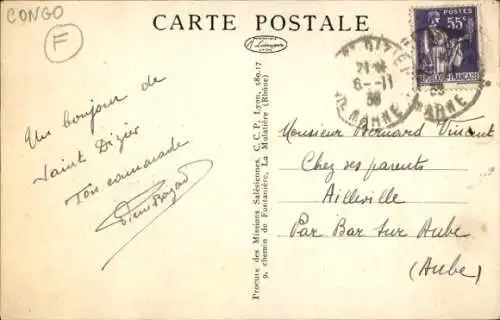 CONGO
F
CARTE POSTALE
POSTES
55c
FRANÇAISE
DIZIER
6-11
38
MARNE
Un bonjour de
Saint Dizier
Ton camarade
Monsieur Bernard Vincent
Chez ses parents
Ailleville
Par Bar sur Aube
(Aube)
Procure des Missions Salésiennes, C. C. P. Lyon, 580.17
9, chemin de Fontanière, La Mulatière (Rhône)